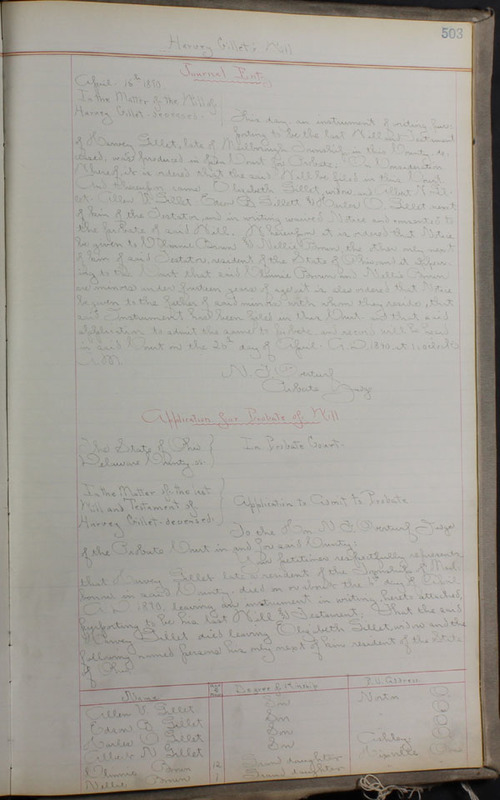 503
Harvey Gillet's Will
Journal Entry
April 16th 1890
In the Matter of the Will of
Harvey Gillet - deceased.
This day, an instrument of writing pur-
porting to be the last Will and Testament
of Harvey Gillet, late of Marlborough Township, in this County, de-
ceased, was produced in Court for Probate. On Consideration
thereof, it is ordered that the said Will be filed in this Court
And thereupon came Elizabeth Gillet, widow and Albert N. Gil-
let Allen V. Gillet, B. Gillett & O. Gillet next
of kin of the Testator, and in writing waived Notice and consented to
the probate of said Will. Whereupon it is ordered that Notice
be given to Minnie Brown & Nellie Brown, the other only next
of kin of said Testator, resident of the State of Ohio and it appear-
ing to the Court that said Minnie Brown and Nellie Brown
are minors under fourteen years of age, it is also ordered that Notice
be given to the father of said minors with whom they reside, that
said Instrument had been filed in their Court and that said
application to admit the same to probate and record will be heard
in said Court on the 20th day of April, A.D. 1890, at 1 o'clock
N. F. Overturf
Probate Judge
Application for Probate of Will
The State of Ohio
Delaware County, ss.
In Probate Court.
In the Matter of the Last
Will and Testament of
Harvey Gillet - deceased.
Application to Admit to Probate
To the Hon. N. F. Overturf Judge
of the Probate Court in and for said County:
Your petitioner respectfully represents
that Harvey Gillet late a resident of the Township of Marl-
borough in said County, died on or about the day of April
A.D. 1890, leaving an instrument in writing hereto attached,
purporting to be his last Will & Testament. That the said
Harvey Gillet died leaving Elizabeth Gillet, widow and the
following named persons his only next of kin resident of the State
of Ohio
Name Age Degree of Kinship P.O. Address
Allen V. Gillet Son Norton O
B. Gillet Son " O
O Gillet Son " O
Albert N Gillet Son Ashley O
Minnie Brown 12 Grand daughter
Nellie Brown Grand daughter